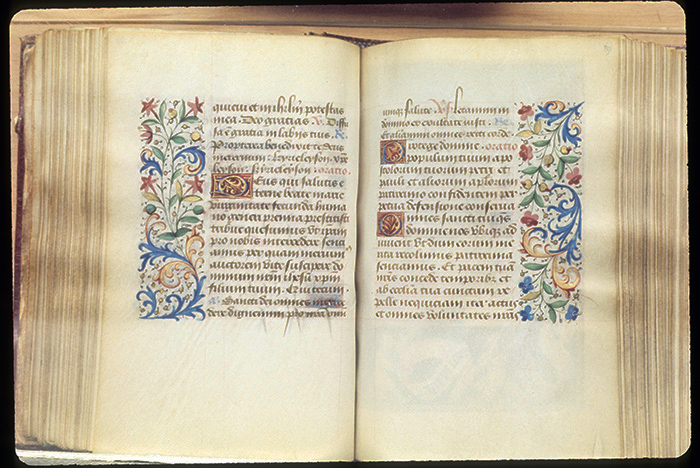 quievi et in ihrlm potestas
mea. Deo gratias. V. Diffu
sa e gratia in labiis tuis. R.
Propterea benedixit te deus
in eternum. kyrieleyson. xpe
leyson. kyrieleyson. oratio.
Deus qui salutis e
terne beate marie
virginitate fecunda huma
no generi premia prestitisti
tribue quesumus ut ipam
pro nobis intercedere senti
amus per quam meruim
auctorem vite suscipere do
minum nrm ihesum xpm
filium tuum. Qui tecum.
a. Sancti dei omnes
dere dignemini pro nra omi
umque salute. V. Letamini in
domino et exultate iusti. R.
Et gliamini omnes recti corde
Protege domine. oratio
populum tuum apo
stolorum tuorum petri et
pauli et aliorum aplorum
patrocinio confidentem per
petua defensione conserva
Omnes sancti tui qs
domine nos ubique ad
iuvent ut dum eorum me
rita recolimus patrocinia
sentiamus. Et pacem tuā
nris concede temporibz et
ab ecclia tua cunctam re
pelle nequiciam iter actus
et omnes voluntates nras